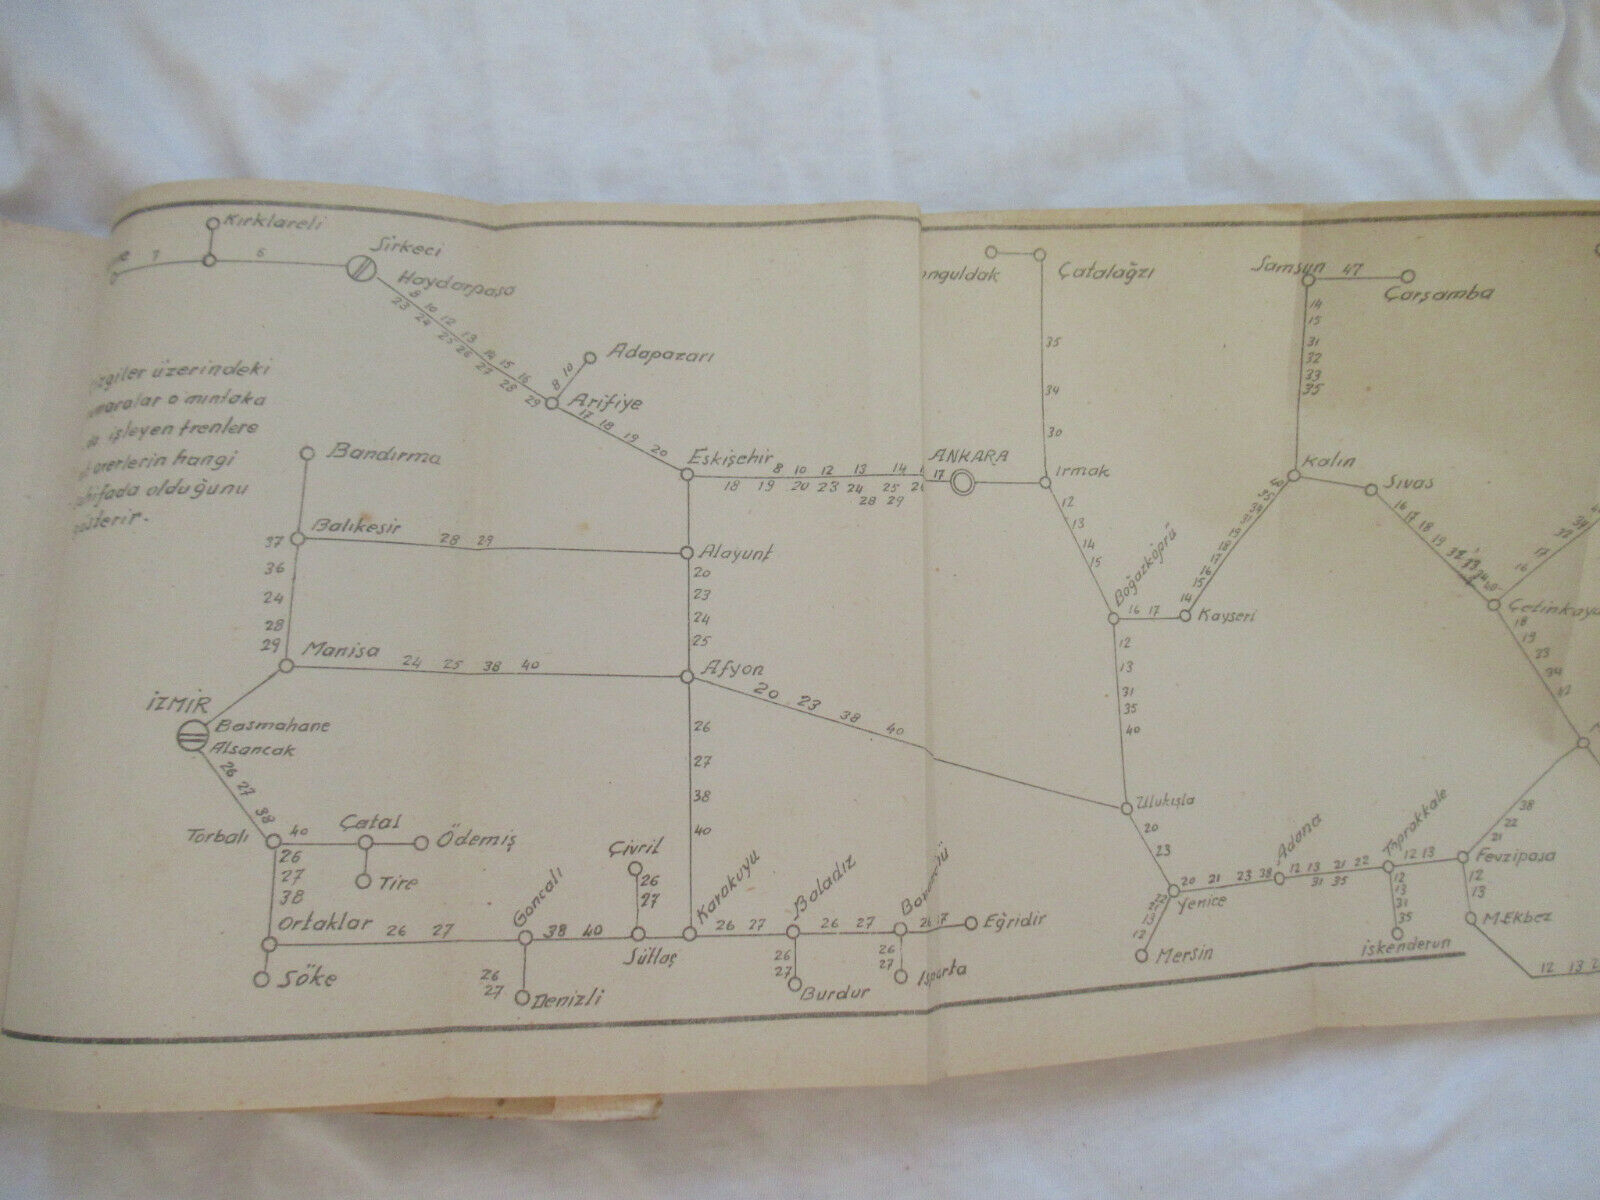 Kırklareli
7
6
Sirkeci
Haydarpaşa
8 10 12 13 14 15 16
23 24 25 26 27 28 29
Adapazarı
8 10
Arifiye
17 18 19 20
üzerindeki
o mıntaka
işleyen trenlere
hangi
olduğunu
Bandırma
Balıkesir
28 29
37
36
24
28
29
Manisa
24 25 38 40
İZMİR
Basmahane
Alsancak
26 27 38
Torbalı
40
Çatal
Ödemiş
Tire
26
27
38
Ortaklar
26 27
Söke
Goncalı
26
27
Denizli
38 40
Çivril
26
27
Sütlaç
Eskişehir
8 10 12 13 14
18 19 20 23 24 25
28 29
Alayunt
20
23
24
25
Afyon
20 23 38 40
26
27
38
40
Karakuyu
26 27
Baladız
26
27
Burdur
26 27
26
27
Isparta
Eğridir
17
ANKARA
Çatalağzı
35
34
30
Irmak
12
13
14
15
Boğazköprü
16 17
Kayseri
12
13
31
35
40
Ulukışla
20
23
Yenice
12
Mersin
20 21 23 38
Adana
12 13 21 22
31 35
Toprakkale
12
13
31
35
İskenderun
12 13
Fevzipaşa
21 22 38
12
13
M.Ekbez
12 13
Samsun
47
Çarşamba
14
15
31
32
33
35
Kalın
Sıvas
16 17 18 19
16 17
18
19
23